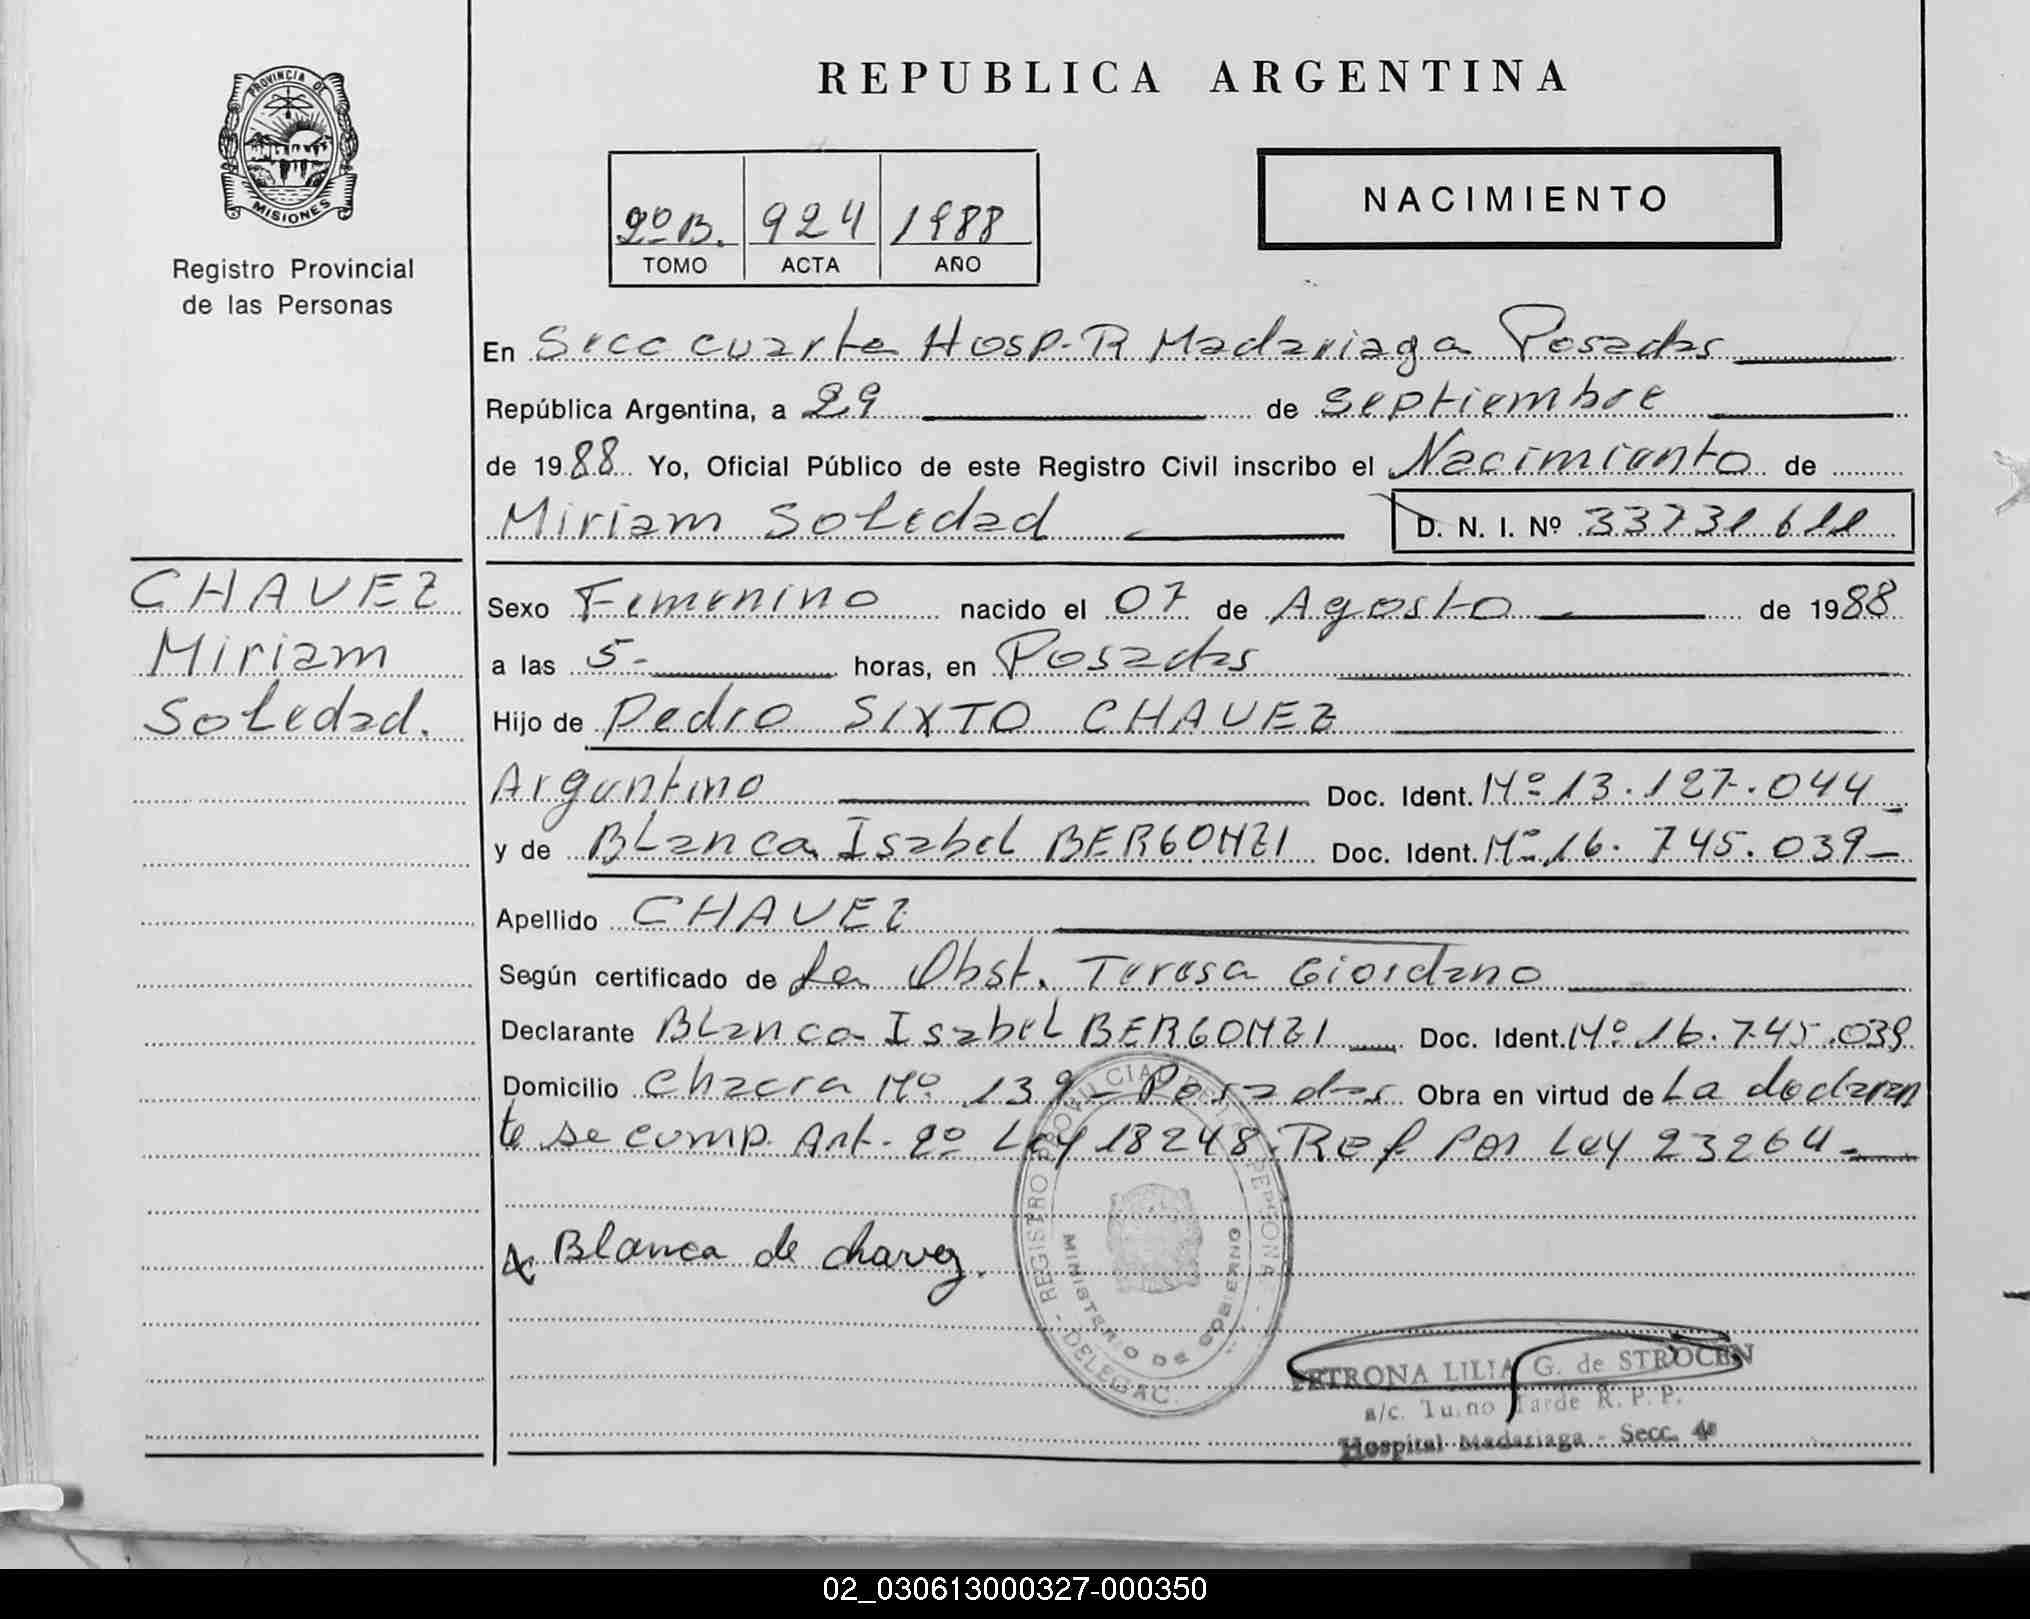 REPUBLICA ARGENTINA
PROVINCIA DE
MISIONES
Registro Provincial
de las Personas
2º B. 924 1988
TOMO ACTA AÑO
NACIMIENTO
En Secc cuarta Hosp. R Madariaga Posadas
República Argentina, a 29 de Septiembre
de 1988 Yo, Oficial Público de este Registro Civil inscribo el Nacimiento de
Miriam Soledad D. N. I. Nº 33731611
CHAVEZ
Miriam
Soledad.
Sexo Femenino nacido el 07 de Agosto de 1988
a las 5- horas, en Posadas
Hijo de Pedro SIXTO CHAVEZ
Argentino Doc. Ident. Nº 13.127.044_
y de BLanca Isabel BERGONZI Doc. Ident. Nº 16.745.039_
Apellido CHAVEZ
Según certificado de La Obst. Teresa Giordano
Declarante BLanca Isabel BERGONZI Doc. Ident. Nº 16.745.039
Domicilio Chacra Nº 139 - Posadas Obra en virtud de La declaran
te se comp. Art. 2º Ley 18248. Ref. Por Ley 23264-
x Blanca de chavez.
REGISTRO PROVINCIAL DE PERSONA - DELEGAC.
MINISTERIO DE GOBIERNO
PETRONA LILIA G. de STROCEN
a/c. Turno Tarde R. P. P.
Hospital Madariaga - Secc. 4ª
02_030613000327-000350